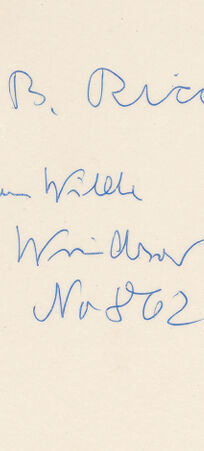 B. Ric
Wilde
Windsor
No 8762